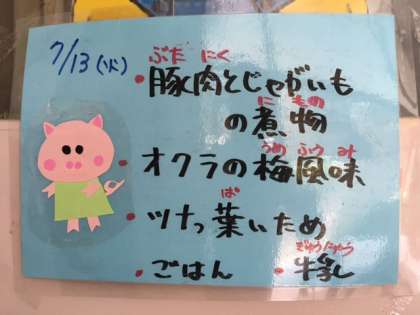 7/13(火)
ぶた にく
・豚肉とじゃがいも
に もの
の煮物
うめ ふう み
・オクラの梅風味
ぱ
・ツナっ葉いため
ぎゅうにゅう
・ごはん ・牛乳